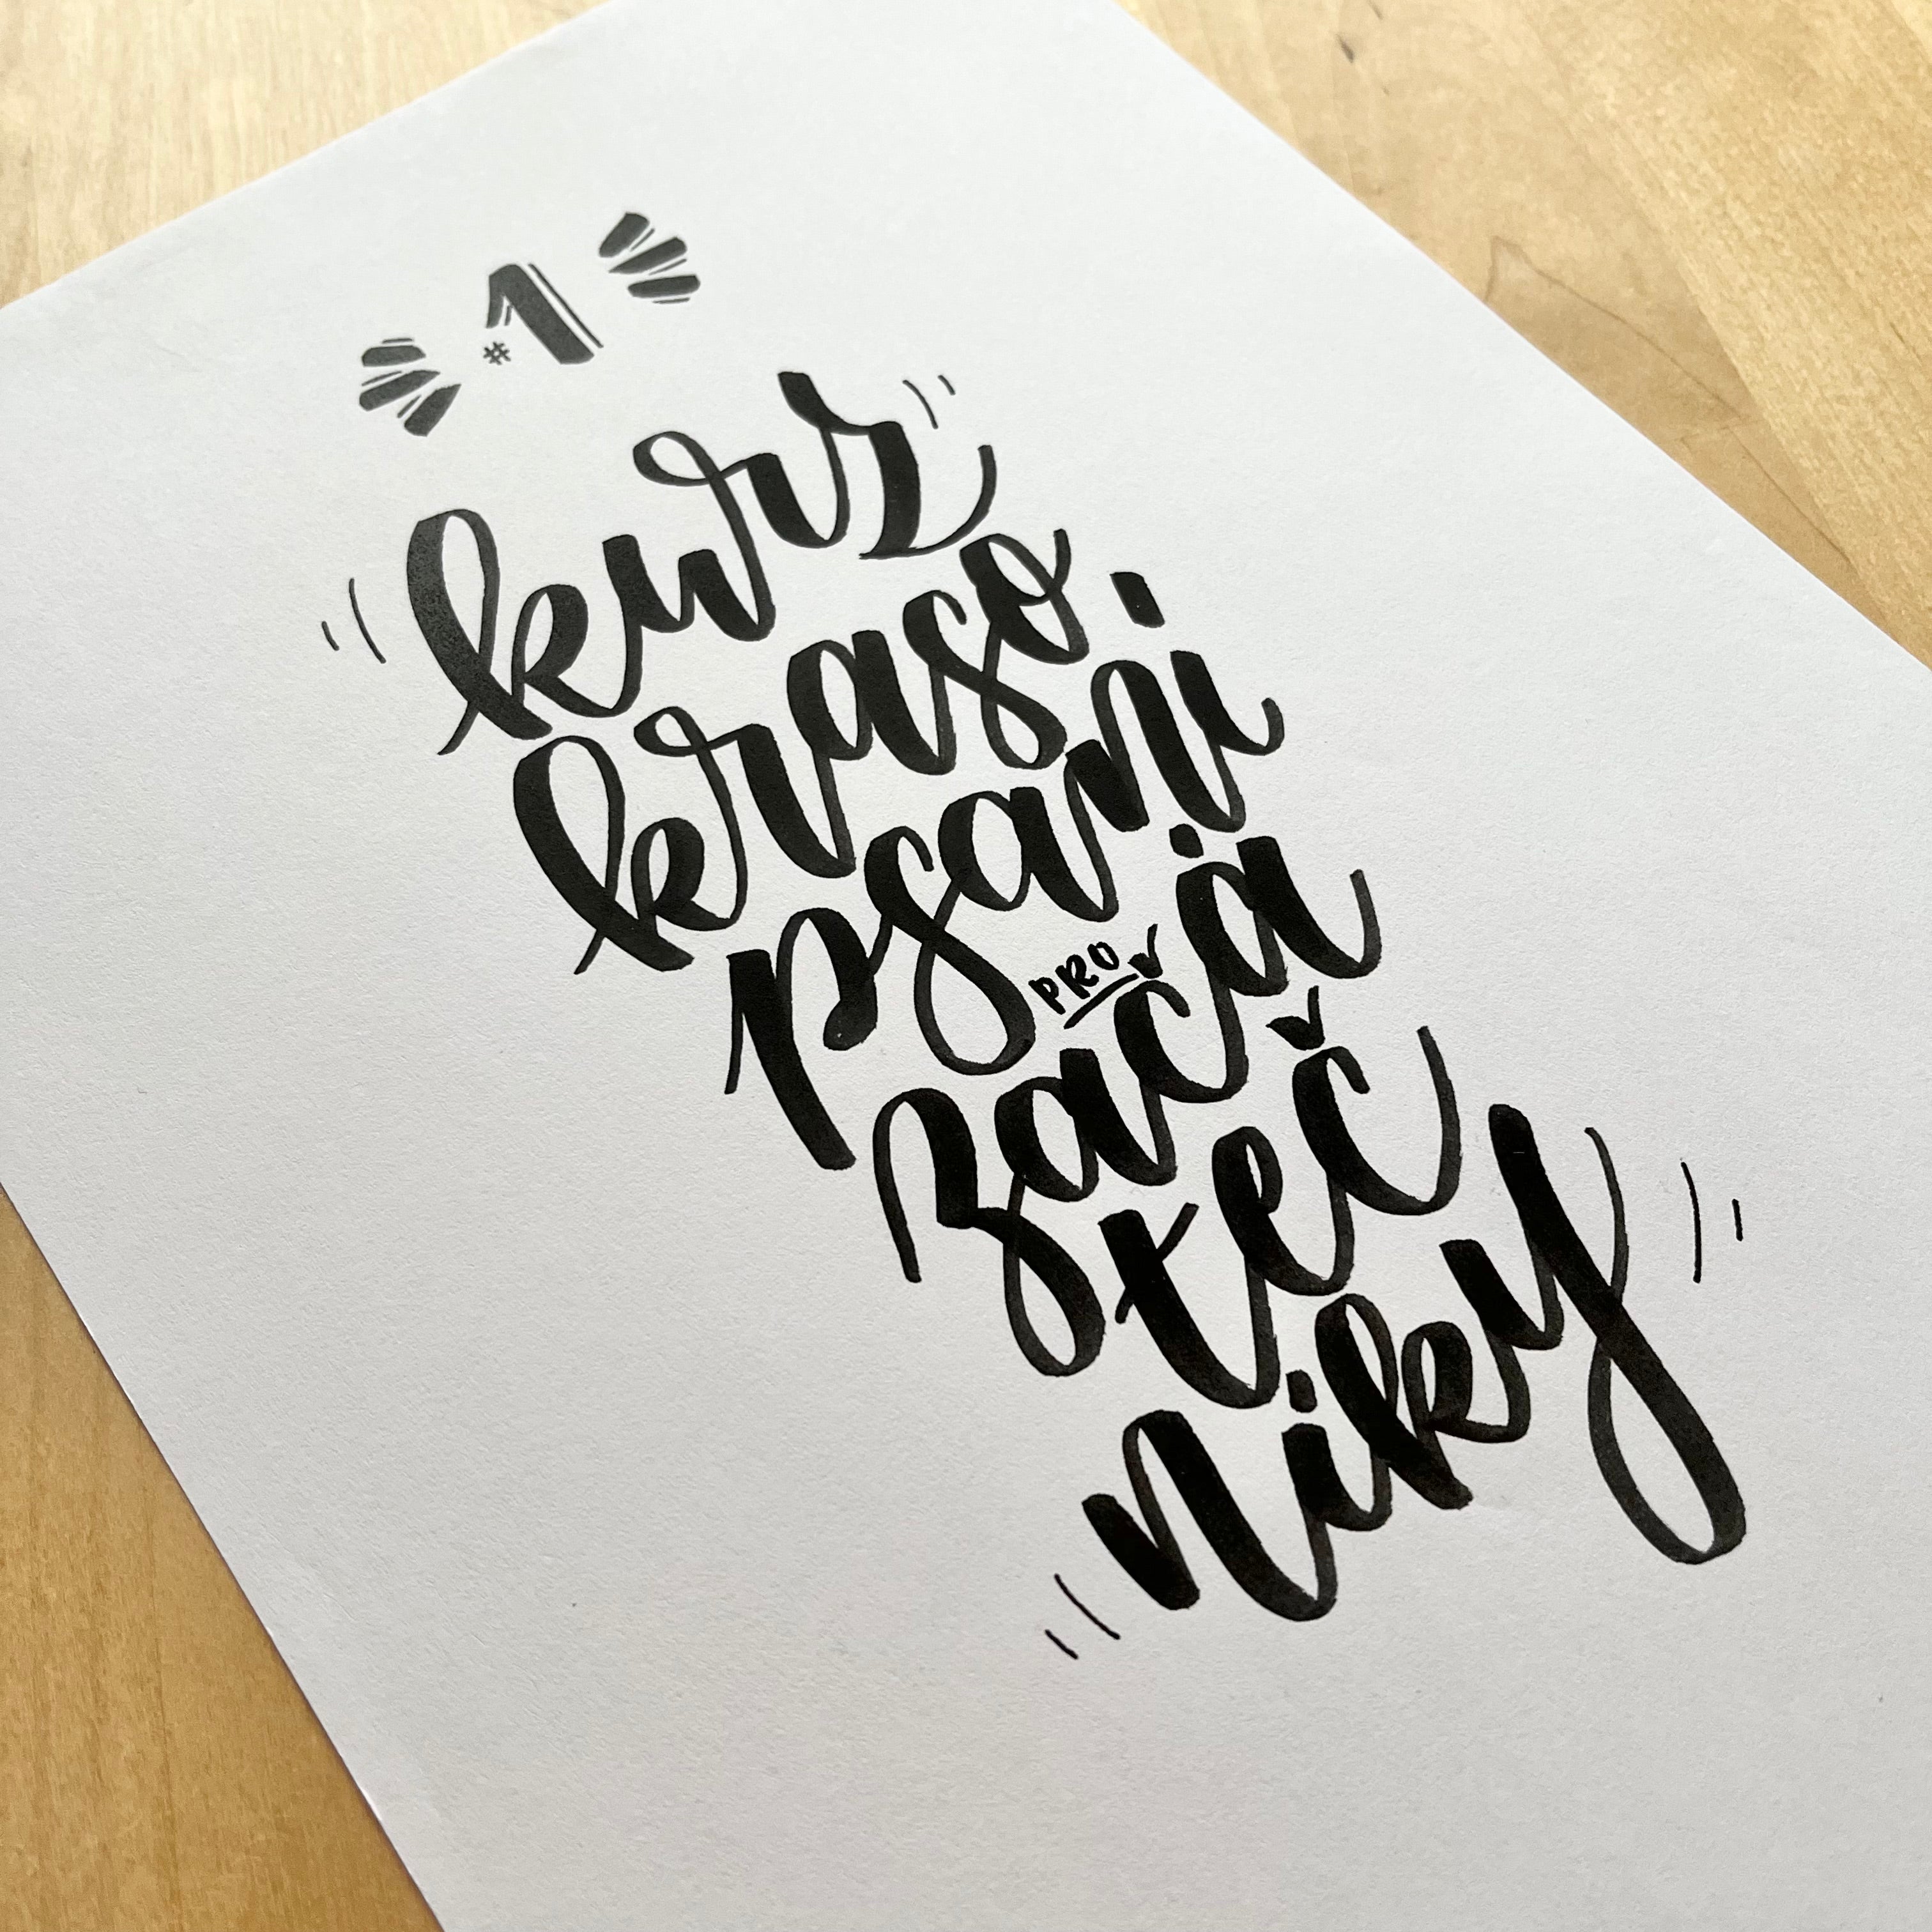 #1
kurz
kraso
psaní
PRO
začá
teč
níky